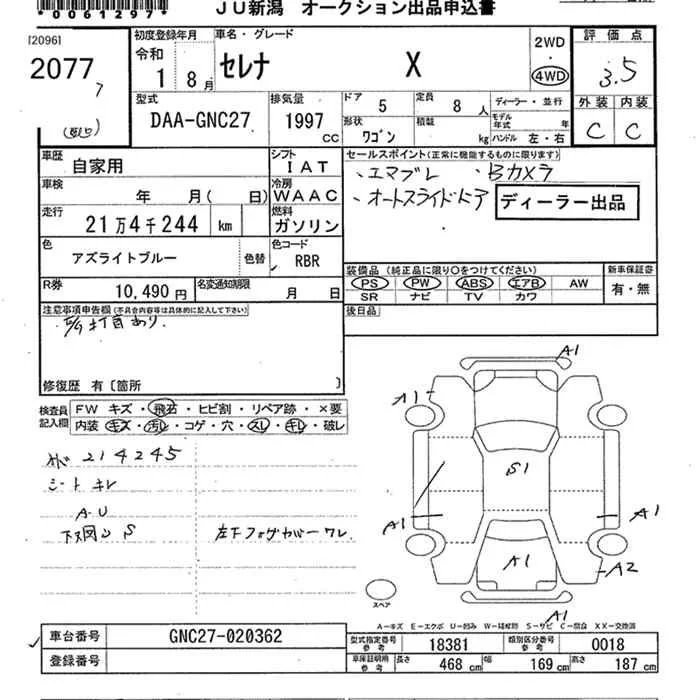 *0061297*
JU新潟 オークション出品申込書
[2096]
2077
7
初度登録年月
令和
1 8月
車名・グレード
セレナ X
2WD
4WD
評価点
3.5
外装 内装
C C
型式
DAA-GNC27
排気量
1997 CC
ドア
5
定員
8 人
ディーラー・並行
形状
ワゴン
積載
kg
モデル年式 年
ハンドル 左・右
車歴
自家用
シフト
IAT
車検
年 月( 日)
冷房
WAAC
走行
21万4千244 km
燃料
ガソリン
色
アズライトブルー
色替
色コード
RBR
R券
10,490円
名変通知期限
月 日
セールスポイント(正常に機能するものに限ります)
、エマブレ 、Bカメラ
、オートスライドドア
ディーラー出品
装備品(純正品に限り○をつけてください)
PS PW ABS エアB AW
SR ナビ TV カワ
新車保証書
有・無
後日品
注意事項申告欄(不具合内容等は具体的に記入して下さい)
修復歴 有〔箇所 〕
検査員記入欄
FW キズ・飛石・ヒビ割・リペア跡・×要
内装・キズ・汚レ・コゲ・穴・スレ・キレ・破レ
214245
シート キレ
A-U
下ス図ムS
左下フォグカバーワレ
A1
A1
S1
A1
A1
A1
A2
A1
スペア
A-キズ E-エクボ U-凹み W-補修跡 S-サビ C-腐食 XX-交換済
車台番号
GNC27-020362
登録番号
型式指定番号 参考
18381
類別区分番号 参考
0018
車庫証明用 参考
長さ 468 cm
幅 169 cm
高さ 187 cm